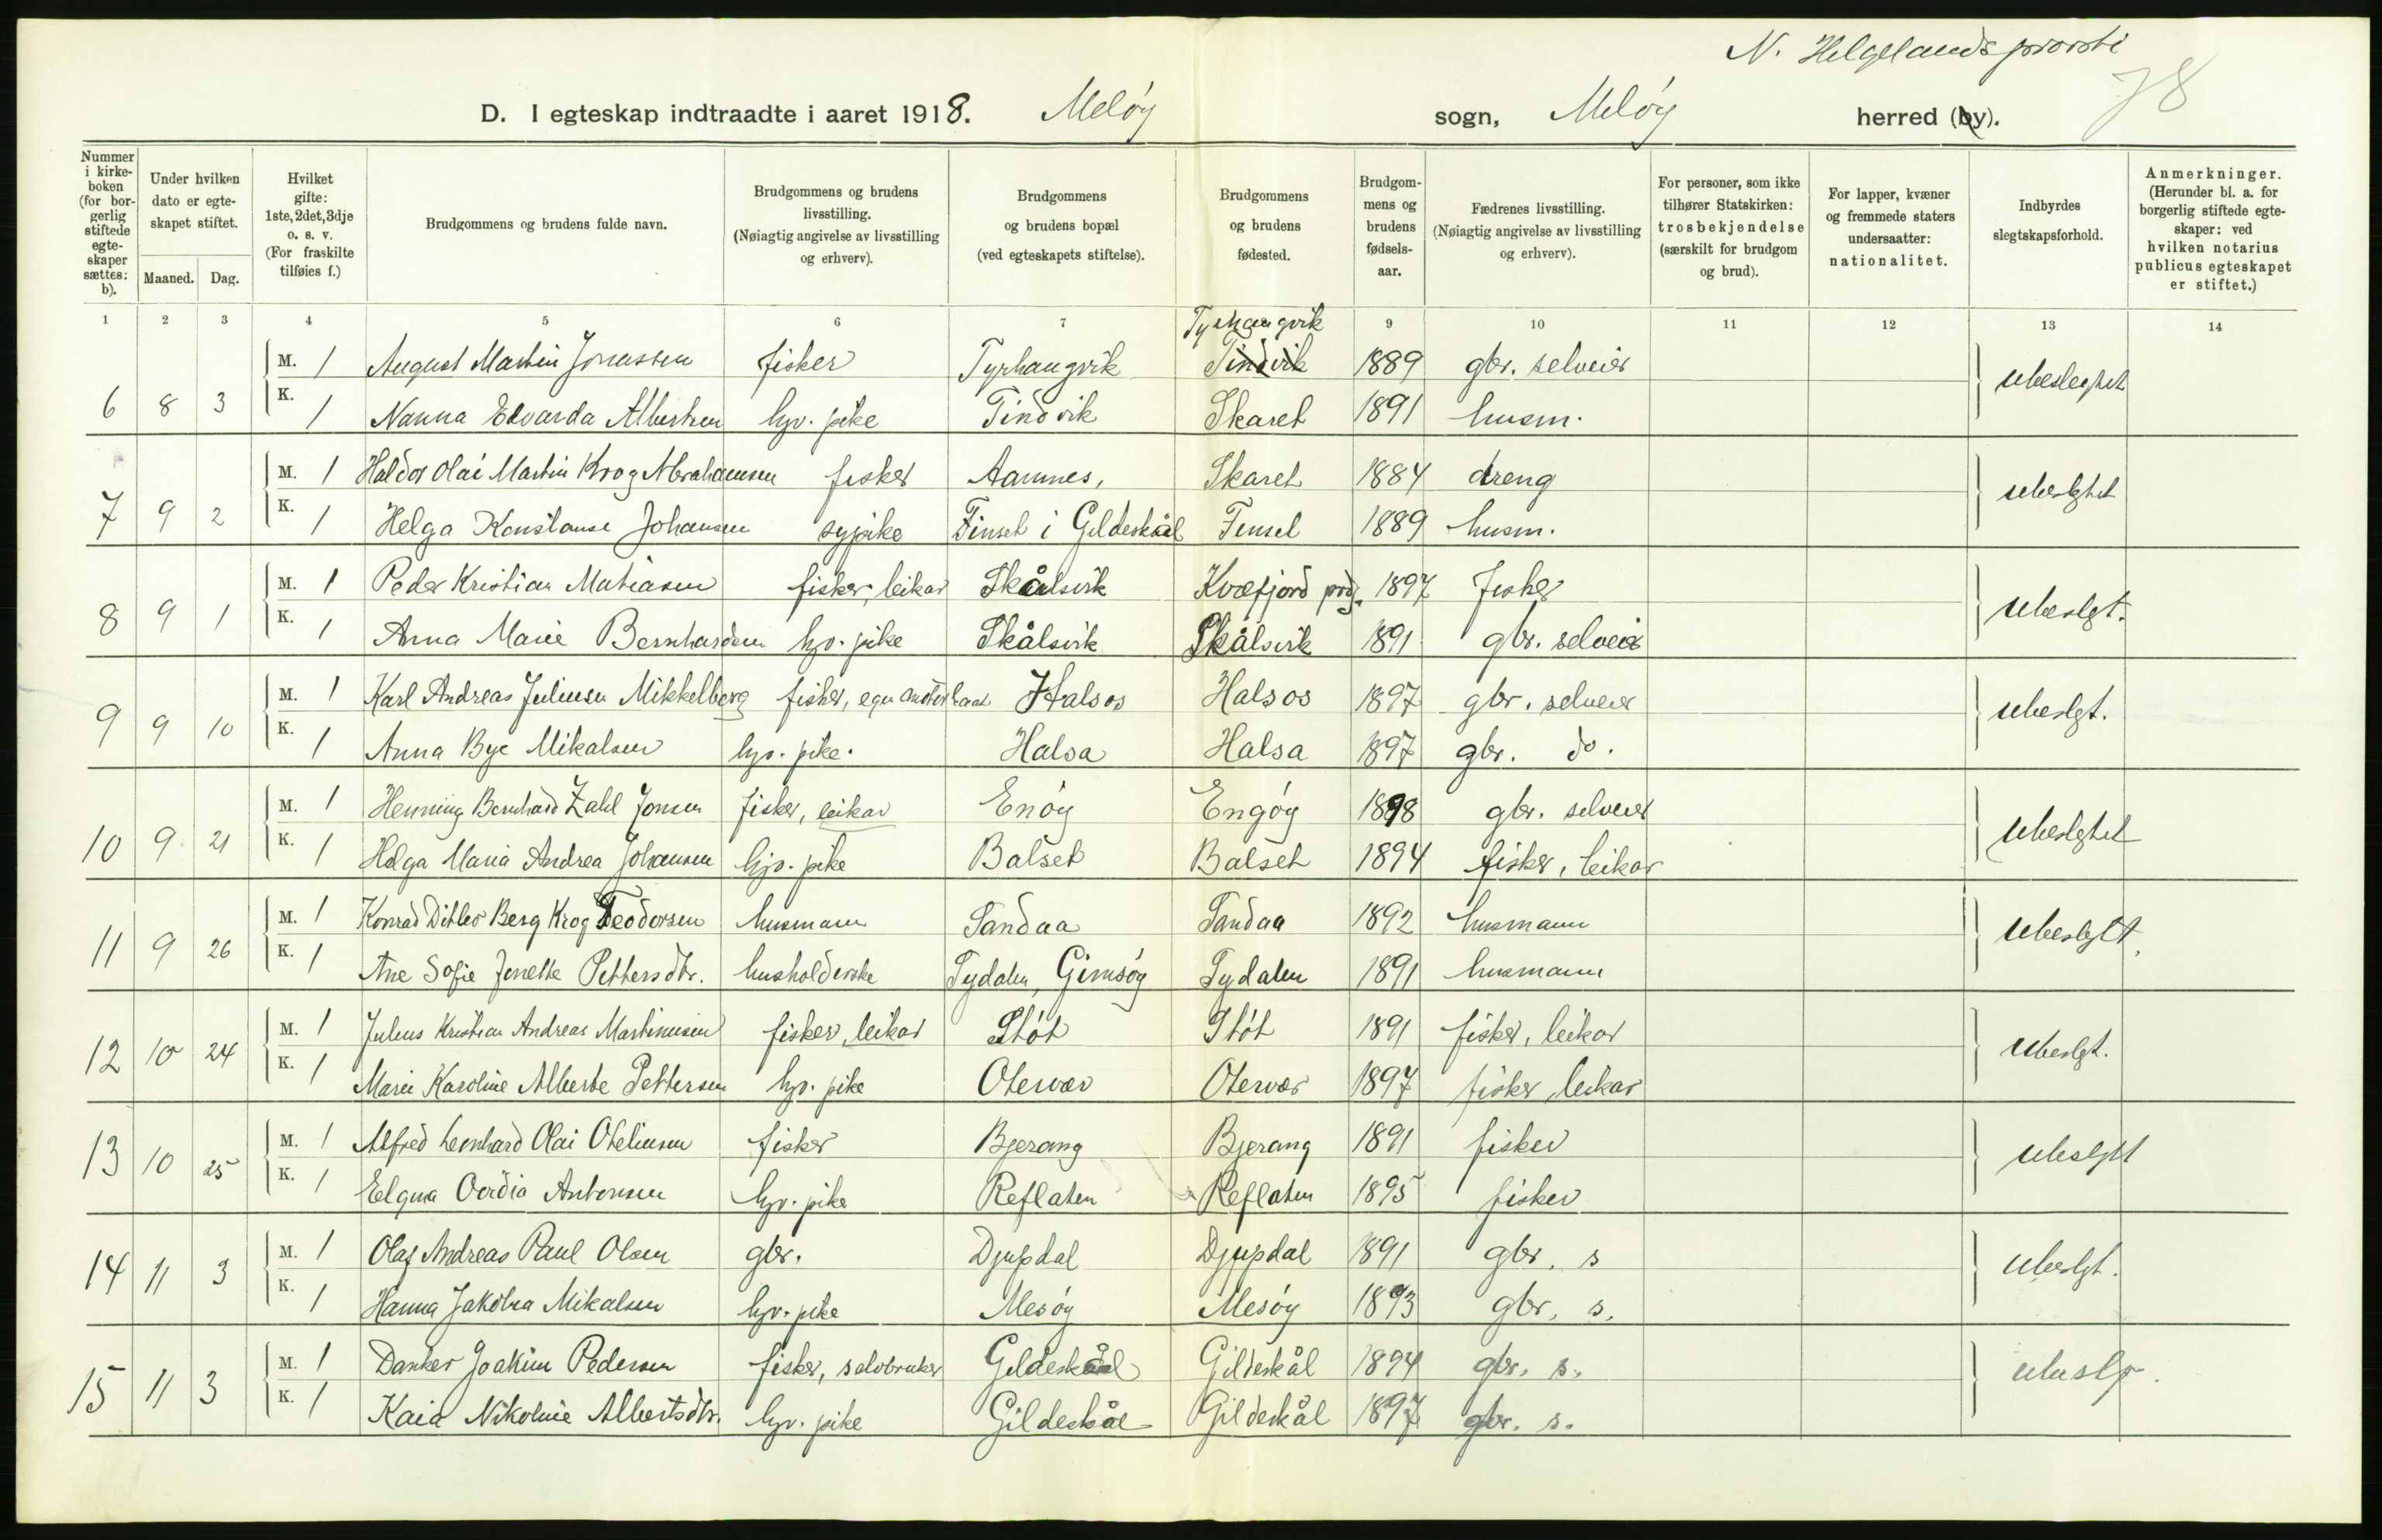 N. Helgelands prosti
78
D. I egteskap indtraadte i aaret 1918. Meløy sogn, Meløy herred (by).
Nummer i kirkeboken (for borgerlig stiftede egteskaper sættes: b).
Under hvilken dato er egteskapet stiftet.
Maaned. Dag.
Hvilket gifte: 1ste, 2det, 3dje o. s. v. (For fraskilte tilføies f.)
Brudgommens og brudens fulde navn.
Brudgommens og brudens livsstilling. (Nøiagtig angivelse av livsstilling og erhverv).
Brudgommens og brudens bopæl (ved egteskapets stiftelse).
Brudgommens og brudens fødested.
Brudgommens og brudens fødselsaar.
Fædrenes livsstilling. (Nøiagtig angivelse av livsstilling og erhverv).
For personer, som ikke tilhører Statskirken: trosbekjendelse (særskilt for brudgom og brud).
For lapper, kvæner og fremmede staters undersaatter: nationalitet.
Indbyrdes slegtskapsforhold.
Anmerkninger. (Herunder bl. a. for borgerlig stiftede egteskaper: ved hvilken notarius publicus egteskapet er stiftet.)
1 2 3 4 5 6 7 9 10 11 12 13 14
Tyrhaugvik
M. 1 August Martin Jonassen fisker Tyrhaugvik Tindvik 1889 gbr. selveier
6 8 3 ubeslegtet
K. 1 Nanna Edvarda Albertsen hjv. pike Tindvik Skaret 1891 husm.
M. 1 Haldor Olai Martin Krog Abrahamsen fisker Aamnes, Skaret 1884 dreng
7 9 2 ubeslgtet
K. 1 Helga Konstanse Johansen sypike Finset i Gildeskål Finset 1889 husm.
M. 1 Peder Kristian Matiasen fisker, leikar Skålsvik Kvæfjord prg. 1897 Fisker
8 9 1 ubeslgt.
K. 1 Anna Marie Bernhardsen hjv. pike Skålsvik Skålsvik 1891 gbr. selveier
M. 1 Karl Andreas Juliusen Mikkelberg fisker, egen motorbaat Halsos Halsos 1897 gbr. selveier
9 9 10 ubeslgt.
K. 1 Anna Bye Mikalsen hjv. pike. Halsa Halsa 1897 gbr. do.
M. 1 Henning Bernhard Zahl Jonsen fisker, leikar Enøy Engøy 1898 gbr. selveier
10 9 21 ubeslgtet
K. 1 Helga Maria Andrea Johansen hjv. pike Balset Balset 1894 fisker, leikar
M. 1 Konrad Ditlev Berg Krog Teodorsen husmann Sandaa Sandaa 1892 husmann
11 9 26 ubeslgtt.
K. 1 Ane Sofie Jenette Pettersdtr. husholderske Sydalen, Gimsøy Sydalen 1891 husmann
M. 1 Julius Kristian Andreas Martinusen fisker, leikar Støt Støt 1891 fisker, leikar
12 10 24 ubeslgt.
K. 1 Marie Karoline Alberte Pettersen hjv. pike Otervær Otervær 1897 fisker, leikar
M. 1 Alfred Leonhard Olai Oteliusen fisker Bjerang Bjerang 1891 fisker
13 10 25 ubeslgtt
K. 1 Antonsen hjv. pike Reflaten Reflaten 1895 fisker
M. 1 Olaf Andreas Paul Olsen gbr. Djupdal Djupdal 1891 gbr. s
14 11 3 ubeslgt.
K. 1 Hanna Jakobea Mikalsen hjv. pike Mesøy Mesøy 1893 gbr. s.
M. 1 Danker Joakim Pedersen fisker, selvbruker Gildeskål Gildeskål 1894 gbr. s.
15 11 3 ubeslg.
K. 1 Kaia Nikoline Albertsdtr. hjv. pike Gildeskål Gildeskål 1897 gbr. s.